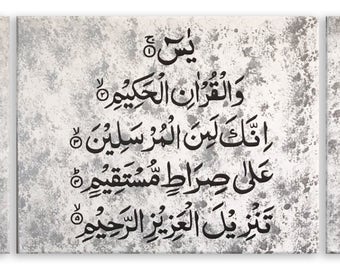 يٰسٓ ۚ ﴿۱﴾
وَالْقُرْاٰنِ الْحَكِيْمِ ۙ ﴿۲﴾
اِنَّكَ لَمِنَ الْمُرْسَلِيْنَ ۙ ﴿۳﴾
عَلٰى صِرَاطٍ مُّسْتَقِيْمٍ ؕ ﴿۴﴾
تَنْزِيْلَ الْعَزِيْزِ الرَّحِيْمِ ۙ ﴿۵﴾